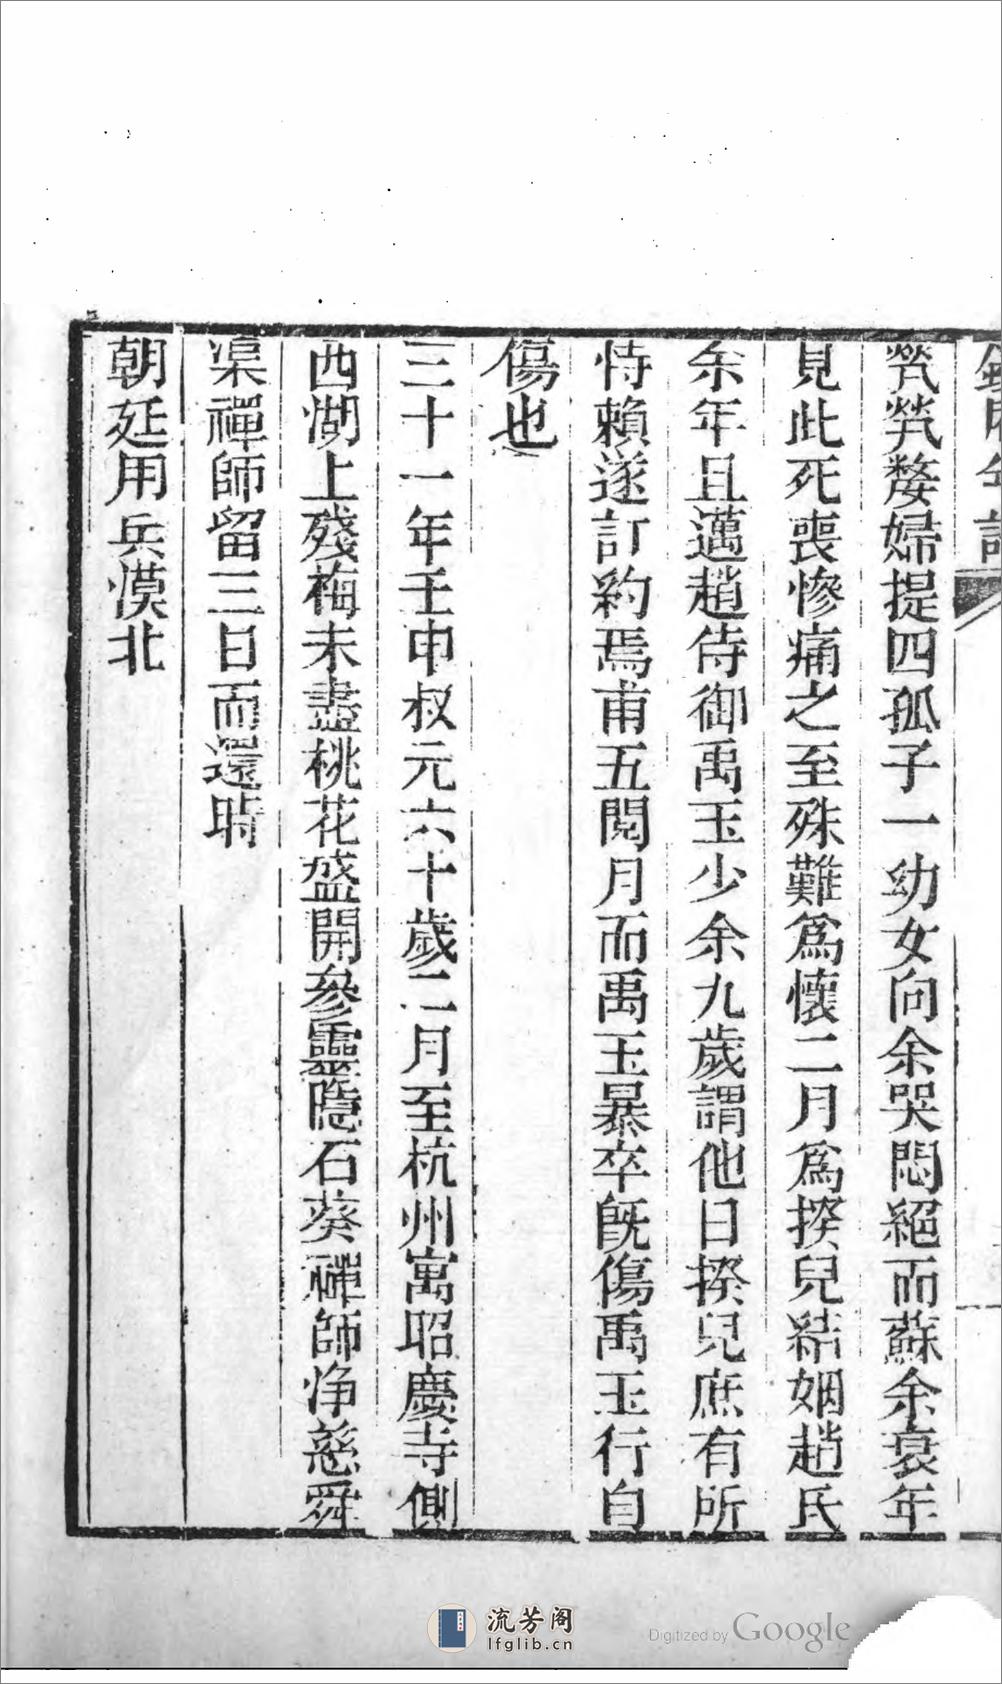 煢煢嫠婦提四孤子一幼女向余哭悶絕而蘇余衰年
見此死喪慘痛之至殊難爲懷二月爲揆兒結姻趙氏
余年且邁趙侍御禹玉少余九歲謂他日揆兒庶有所
恃賴遂訂約焉甫五閱月而禹玉暴卒旣傷禹玉行自
傷也
三十一年壬申叔元六十歲二月至杭州寓昭慶寺側
西湖上殘梅未盡桃花盛開參靈隱石葵禪師淨慈舜
渠禪師留三日而還時
朝廷用兵漠北
流芳阁
lfglib.cn
Digitized by Google